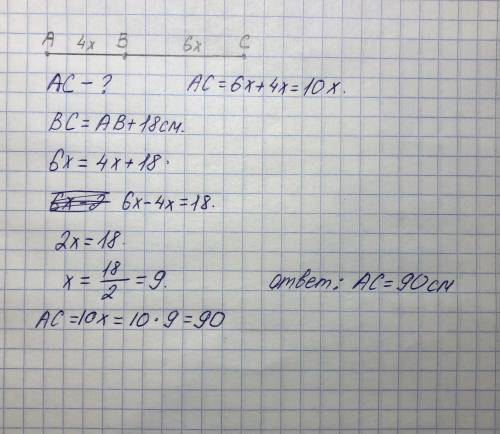 A 4x B 6x C
AC - ? AC = 6x + 4x = 10x.
BC = AB + 18см.
6x = 4x + 18.
6x - 4x = 18.
2x = 18.
x = 18/2 = 9. ответ: AC = 90 см
AC = 10x = 10 · 9 = 90